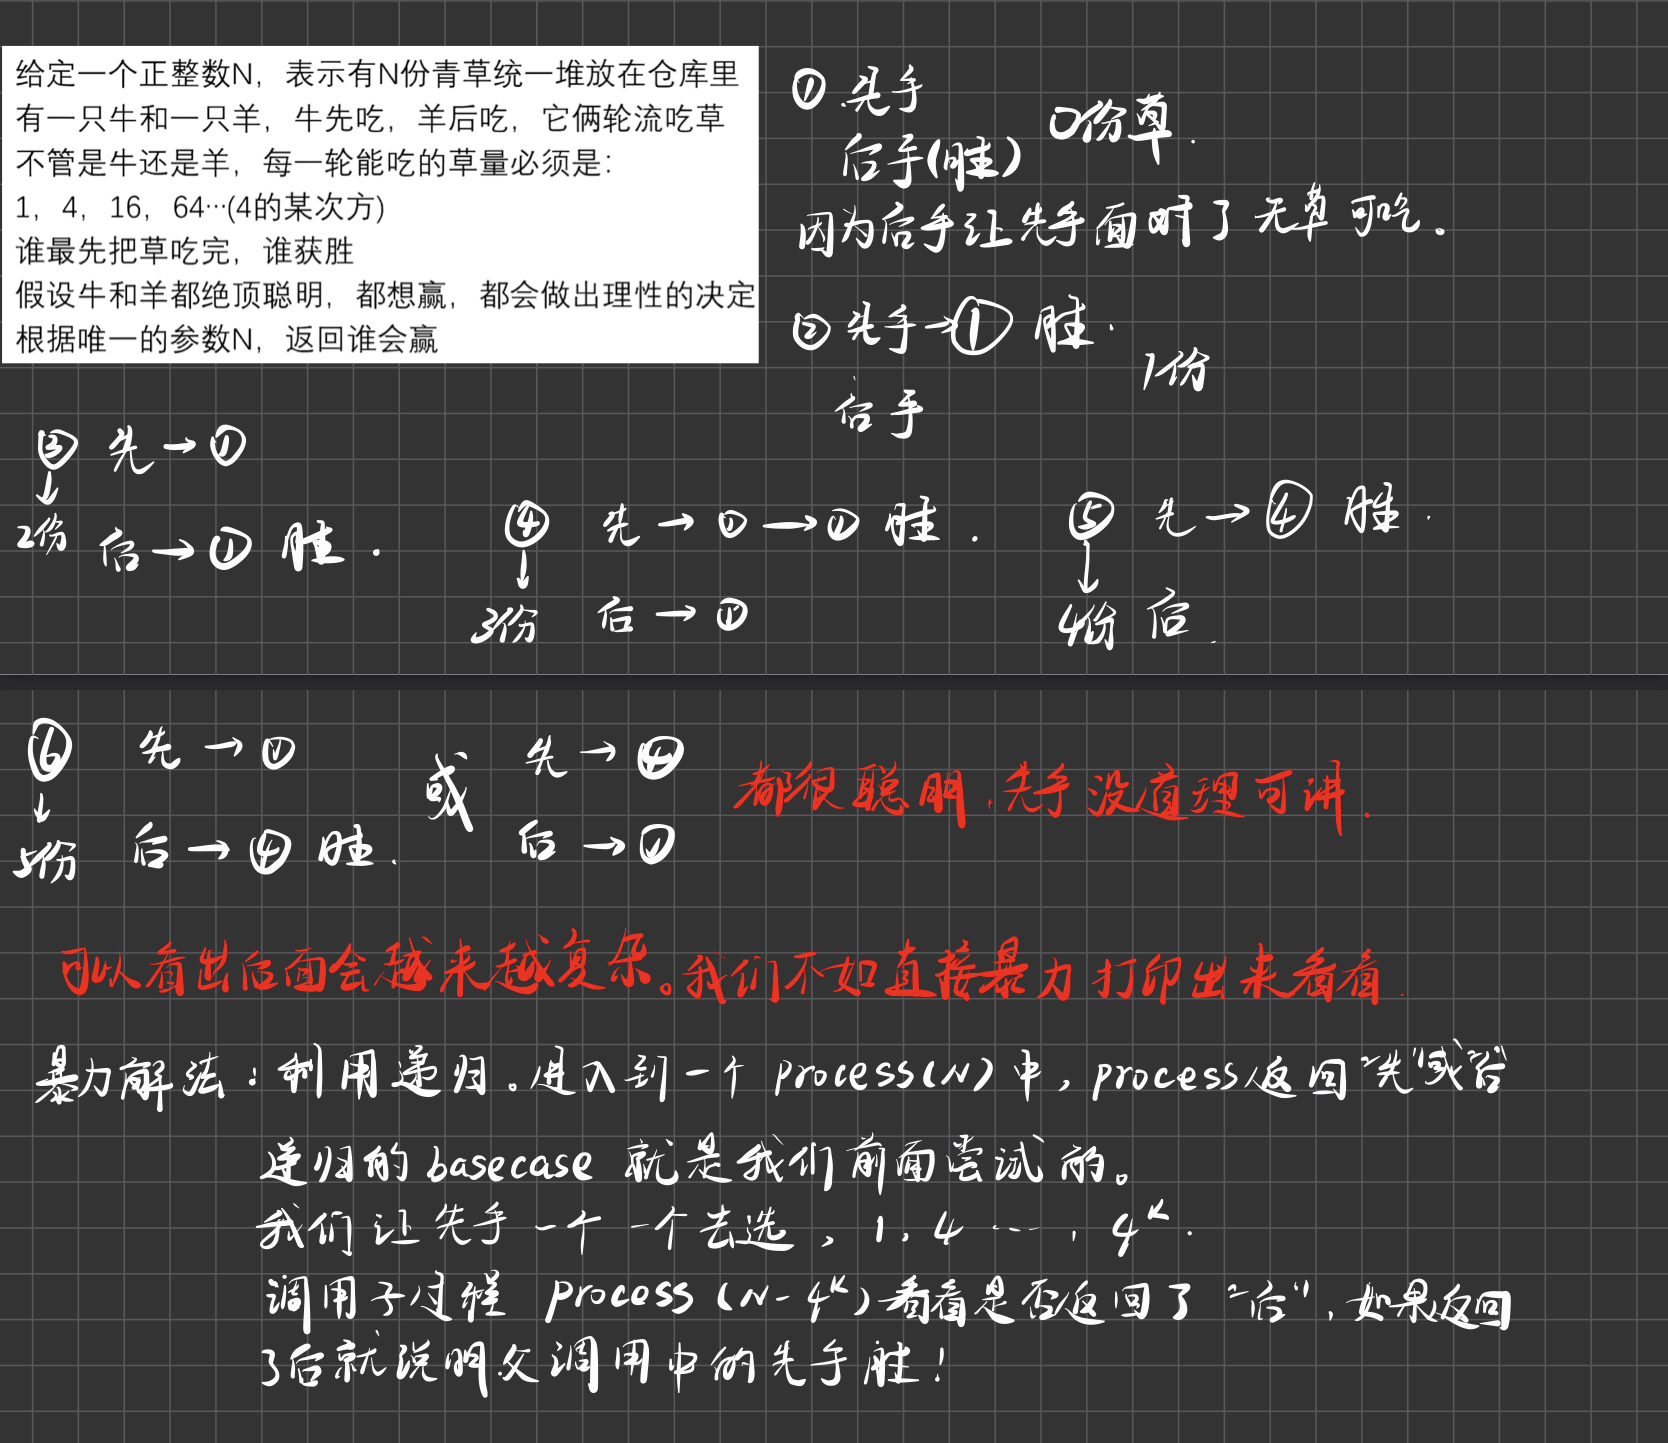 给定一个正整数N，表示有N份青草统一堆放在仓库里
有一只牛和一只羊，牛先吃，羊后吃，它俩轮流吃草
不管是牛还是羊，每一轮能吃的草量必须是：
1，4，16，64…(4的某次方)
谁最先把草吃完，谁获胜
假设牛和羊都绝顶聪明，都想赢，都会做出理性的决定
根据唯一的参数N，返回谁会赢
① 先手
后手(胜) 0份草.
因为后手让先手面对了无草可吃。
② 先手→① 胜.
1份
后手
③ 先→①
↓
2份 后→① 胜.
④ 先→①→① 胜.
↓
3份 后→①
⑤ 先→④ 胜.
↓
4份 后.
⑥ 先→①
↓
5份 后→④ 胜.
或
先→④
后→①
都很聪明,先手没道理可讲.
可以看出后面会越来越复杂。我们不如直接暴力打印出来看看.
暴力解法:利用递归。进入到一个process(N)中,process返回"先"或"后"
递归的basecase就是我们前面尝试的。
我们让先手一个一个去选,1,4…,4ᴷ.
调用子过程 process(N-4ᴷ)看看是否返回了"后",如果返回
了后就说明父调用中的先手胜!